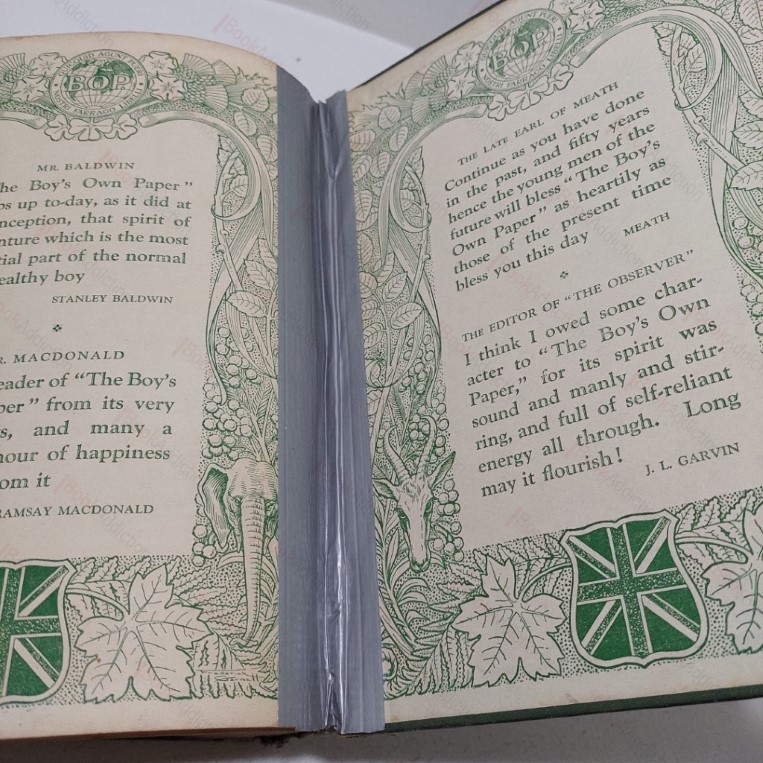 B.O.P.
MR. BALDWIN
he Boy's Own Paper"
ps up to-day, as it did at
nception, that spirit of
nture which is the most
tial part of the normal
ealthy boy
STANLEY BALDWIN
R. MACDONALD
eader of "The Boy's
per" from its very
s, and many a
hour of happiness
om it
RAMSAY MACDONALD
B.O.P.
THE LATE EARL OF MEATH
Continue as you have done
in the past, and fifty years
hence the young men of the
future will bless "The Boy's
Own Paper" as heartily as
those of the present time
bless you this day
MEATH
THE EDITOR OF "THE OBSERVER"
I think I owed some char-
acter to "The Boy's Own
Paper," for its spirit was
sound and manly and stir-
ring, and full of self-reliant
energy all through. Long
may it flourish!
J. L. GARVIN